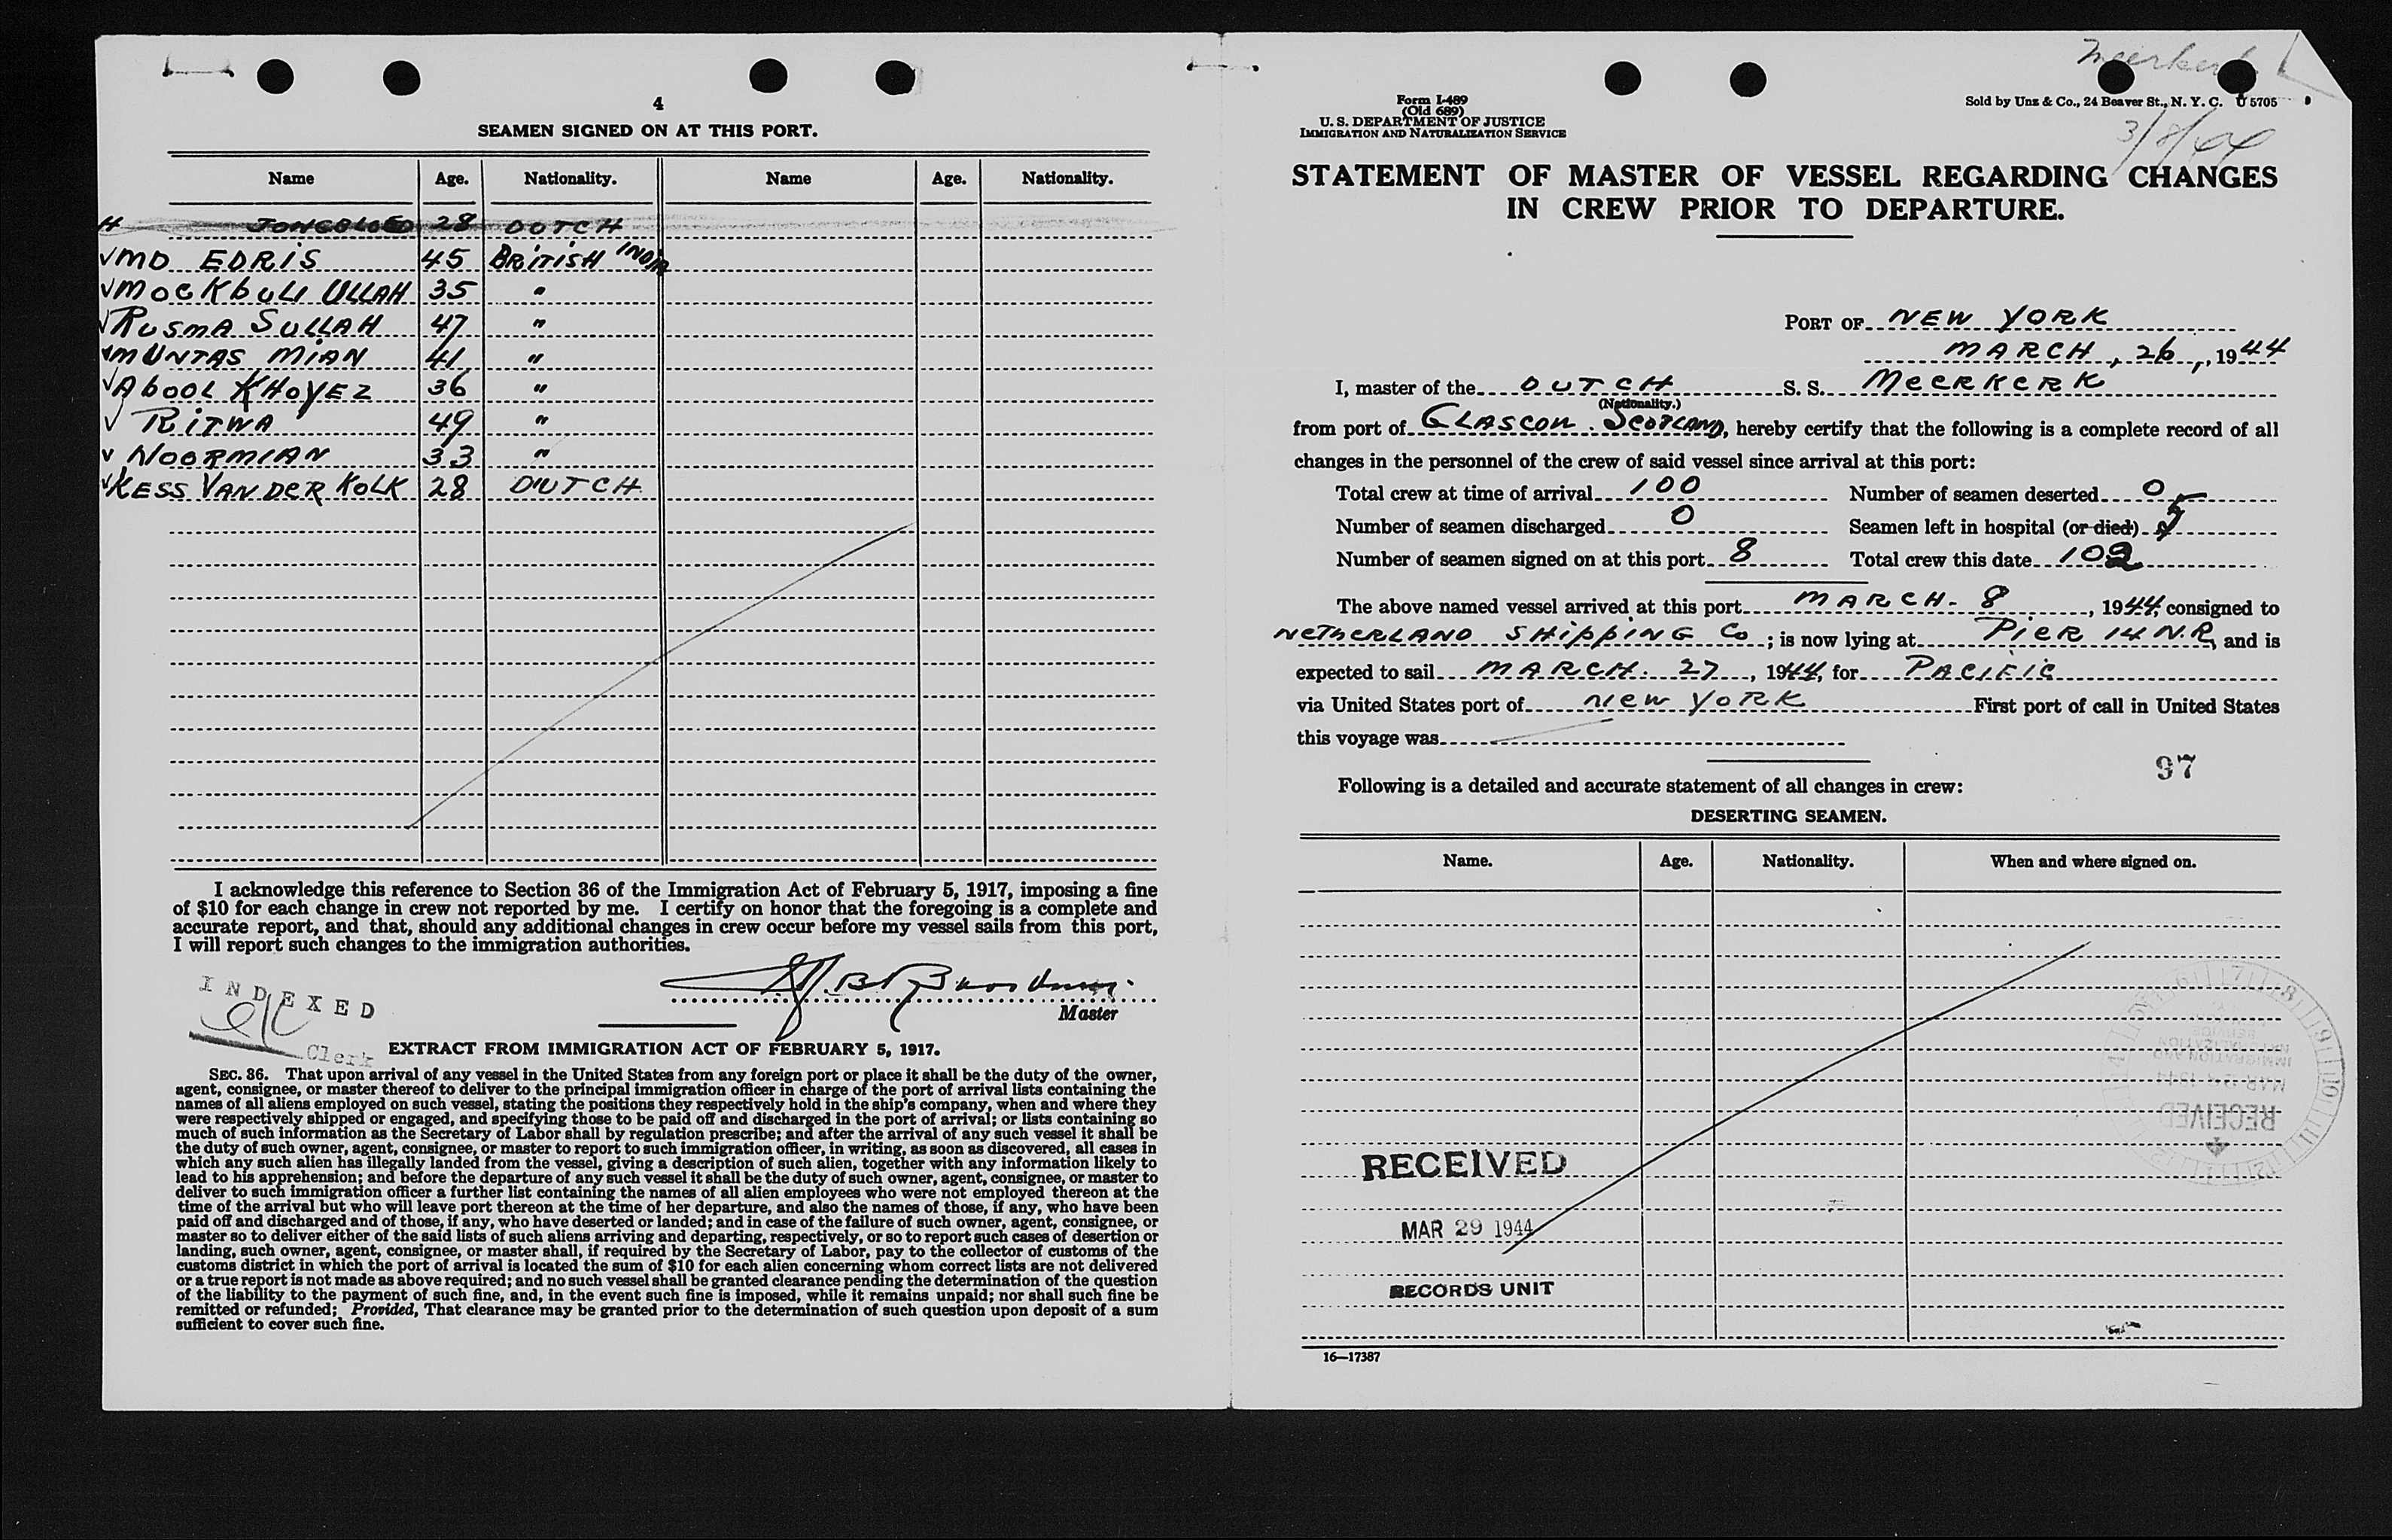 4
SEAMEN SIGNED ON AT THIS PORT.
Name Age. Nationality. Name Age. Nationality.
H JONGBLOED 28 DUTCH
√ MD EDRIS 45 BRITISH INDIA
√ MOCKBULL ULLAH 35 "
√ RUSMA SULLAH 47 "
√ MUNTAS MIAN 41 "
√ ABOOL KHOYEZ 36 "
√ RITWA 49 "
√ NOORMIAN 33 "
√ KESS VAN DER KOLK 28 DUTCH
I acknowledge this reference to Section 36 of the Immigration Act of February 5, 1917, imposing a fine
of $10 for each change in crew not reported by me. I certify on honor that the foregoing is a complete and
accurate report, and that, should any additional changes in crew occur before my vessel sails from this port,
I will report such changes to the immigration authorities.
INDEXED
Master
Clerk
EXTRACT FROM IMMIGRATION ACT OF FEBRUARY 5, 1917.
SEC. 36. That upon arrival of any vessel in the United States from any foreign port or place it shall be the duty of the owner,
agent, consignee, or master thereof to deliver to the principal immigration officer in charge of the port of arrival lists containing the
names of all aliens employed on such vessel, stating the positions they respectively hold in the ship's company, when and where they
were respectively shipped or engaged, and specifying those to be paid off and discharged in the port of arrival; or lists containing so
much of such information as the Secretary of Labor shall by regulation prescribe; and after the arrival of any such vessel it shall be
the duty of such owner, agent, consignee, or master to report to such immigration officer, in writing, as soon as discovered, all cases in
which any such alien has illegally landed from the vessel, giving a description of such alien, together with any information likely to
lead to his apprehension; and before the departure of any such vessel it shall be the duty of such owner, agent, consignee, or master to
deliver to such immigration officer a further list containing the names of all alien employees who were not employed thereon at the
time of the arrival but who will leave port thereon at the time of her departure, and also the names of those, if any, who have been
paid off and discharged and of those, if any, who have deserted or landed; and in case of the failure of such owner, agent, consignee, or
master so to deliver either of the said lists of such aliens arriving and departing, respectively, or so to report such cases of desertion or
landing, such owner, agent, consignee, or master shall, if required by the Secretary of Labor, pay to the collector of customs of the
customs district in which the port of arrival is located the sum of $10 for each alien concerning whom correct lists are not delivered
or a true report is not made as above required; and no such vessel shall be granted clearance pending the determination of the question
of the liability to the payment of such fine, and, in the event such fine is imposed, while it remains unpaid; nor shall such fine be
remitted or refunded; Provided, That clearance may be granted prior to the determination of such question upon deposit of a sum
sufficient to cover such fine.
Meerkerk
Form I-489
(Old 689)
U. S. DEPARTMENT OF JUSTICE
IMMIGRATION AND NATURALIZATION SERVICE
Sold by Unz & Co., 24 Beaver St., N. Y. C. U 5705
3/8/44
STATEMENT OF MASTER OF VESSEL REGARDING CHANGES
IN CREW PRIOR TO DEPARTURE.
PORT OF NEW YORK
MARCH, 26, 1944
I, master of the DUTCH S. S. MEERKERK
(Nationality.)
from port of GLASGOW. SCOTLAND, hereby certify that the following is a complete record of all
changes in the personnel of the crew of said vessel since arrival at this port:
Total crew at time of arrival 100 Number of seamen deserted 0
Number of seamen discharged 0 Seamen left in hospital (or died)
Number of seamen signed on at this port 8 Total crew this date 102
The above named vessel arrived at this port MARCH- 8, 1944, consigned to
NETHERLAND SHIPPING Co; is now lying at PIER 14 N.R, and is
expected to sail MARCH. 27, 1944, for PACIFIC
via United States port of NEW YORK First port of call in United States
this voyage was
97
Following is a detailed and accurate statement of all changes in crew:
DESERTING SEAMEN.
Name. Age. Nationality. When and where signed on.
RECEIVED
MAR 29 1944
RECORDS UNIT
RECEIVED
16—17387